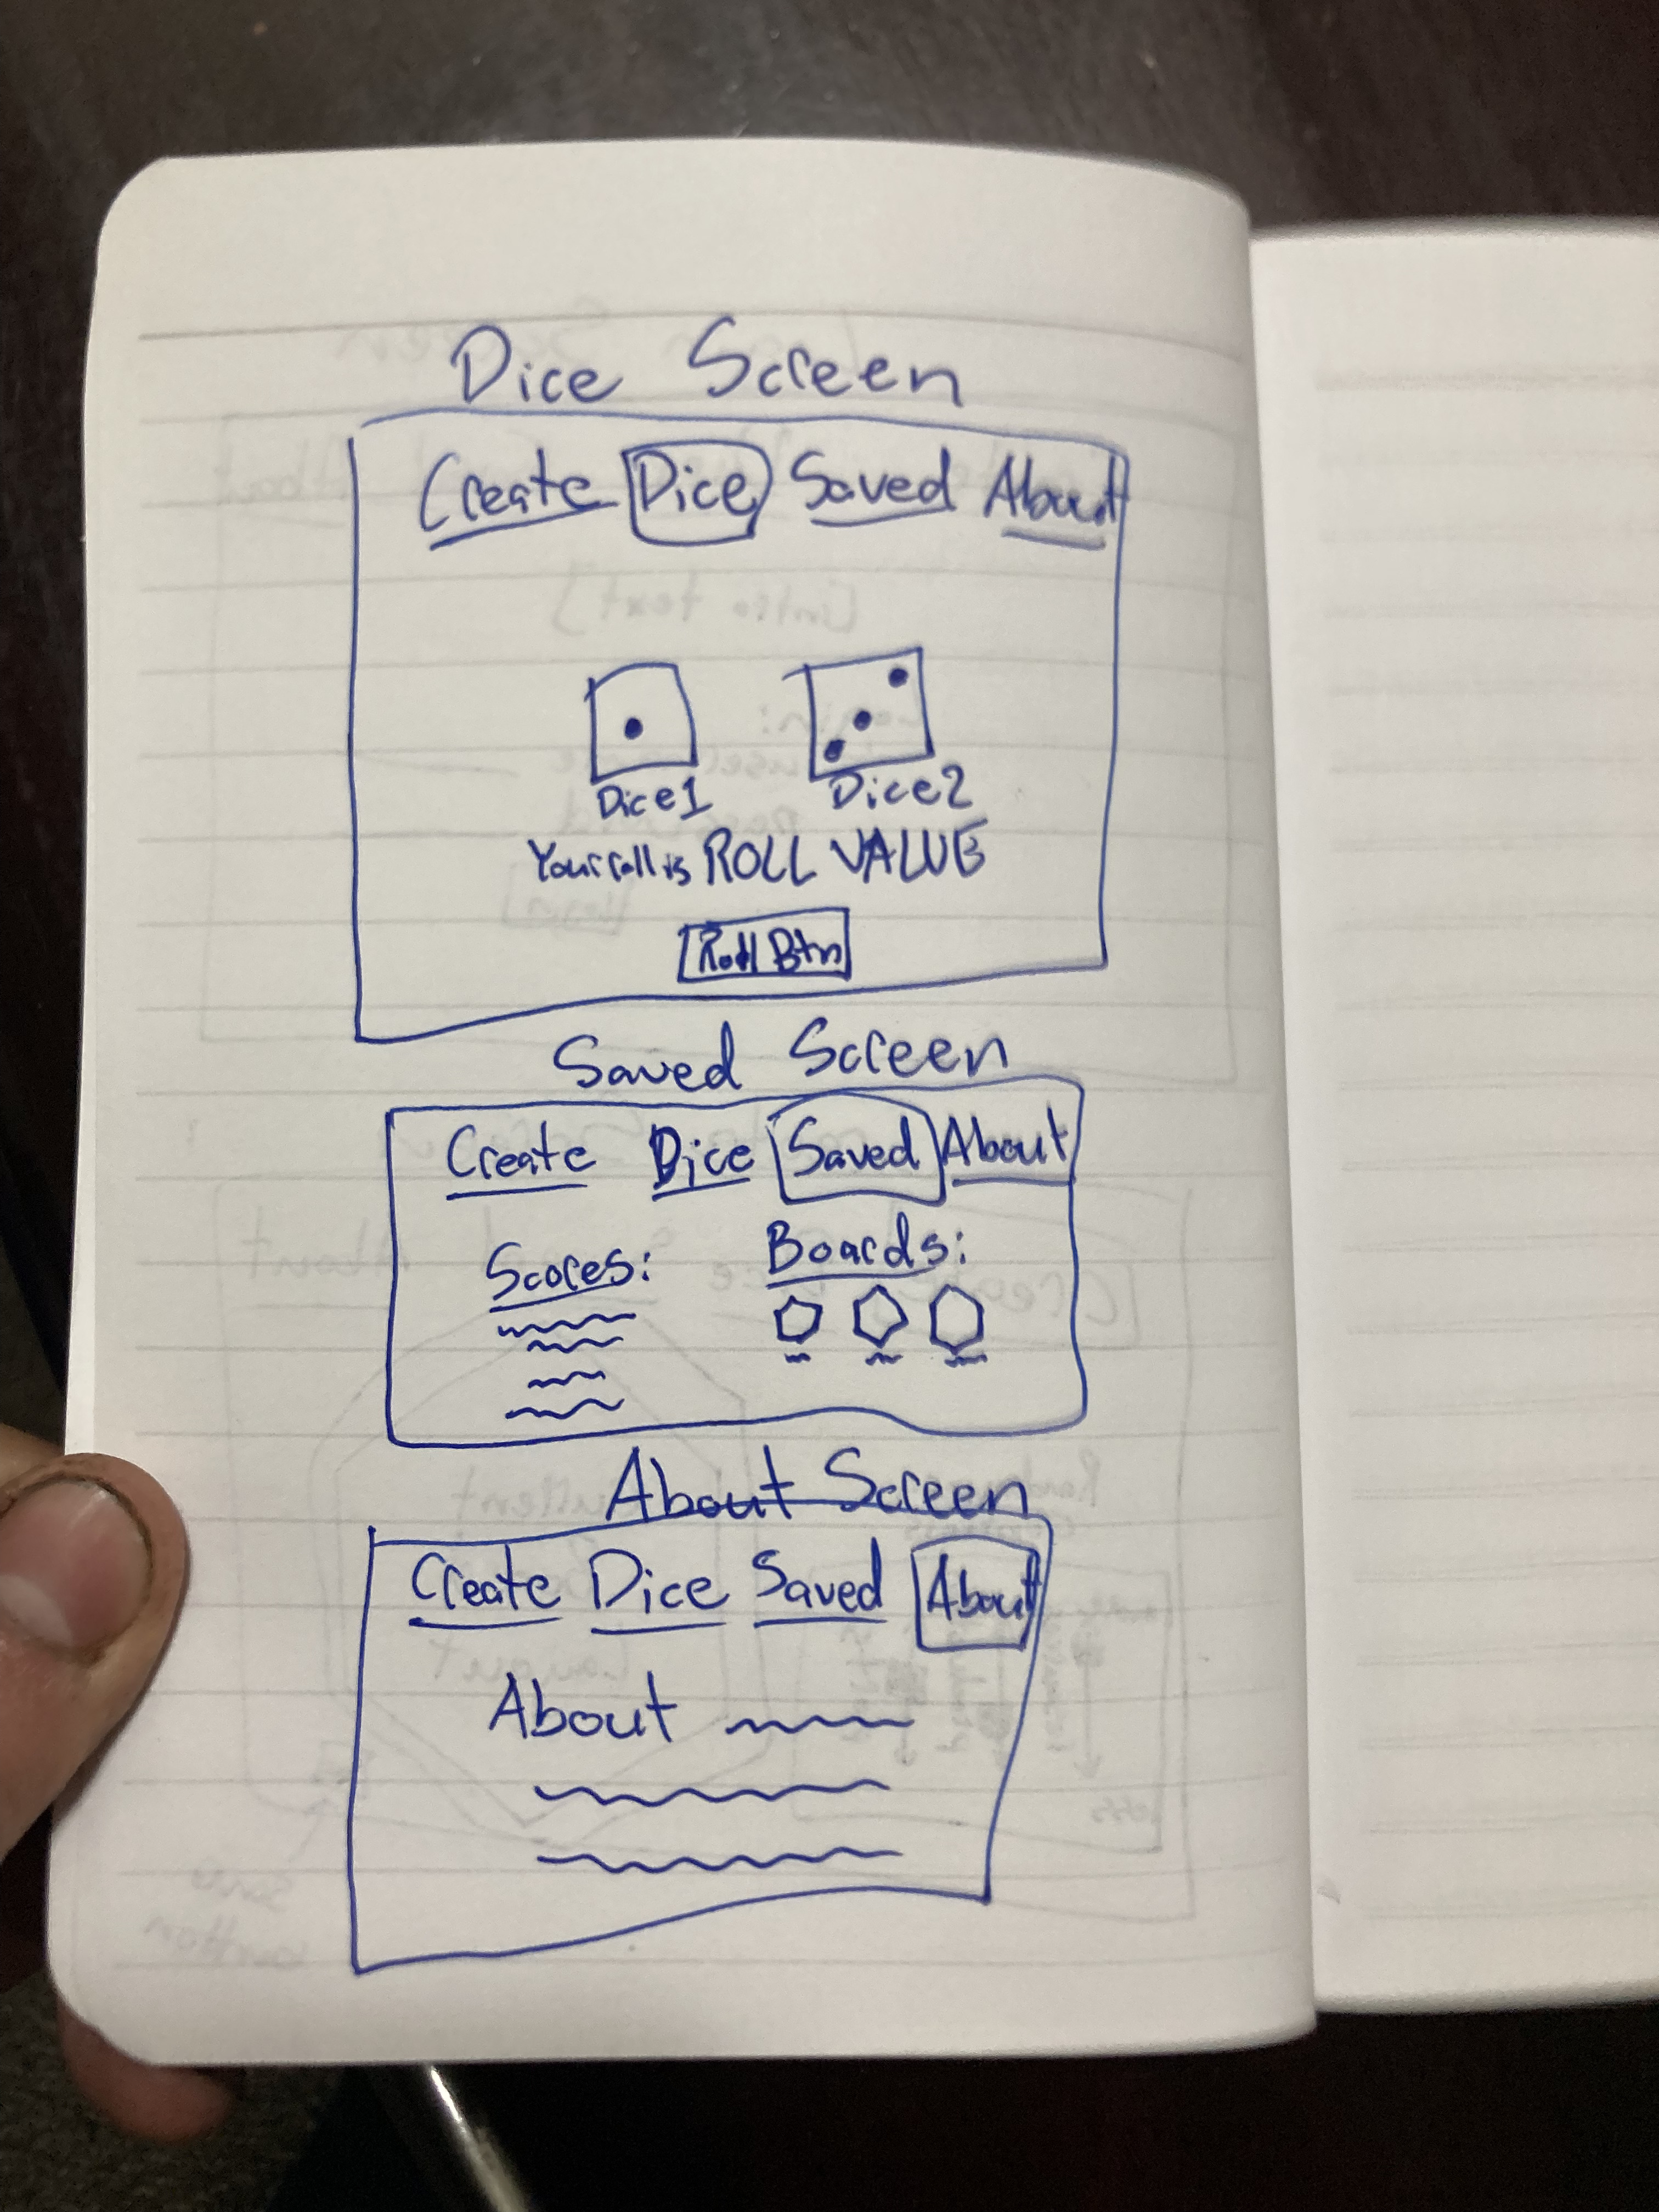 Dice Screen
Create Dice Saved About
Dice1 Dice2
Your roll is ROLL VALUE
Roll Btn
Saved Screen
Create Dice Saved About
Scores: Boards:
About Screen
Create Dice Saved About
About